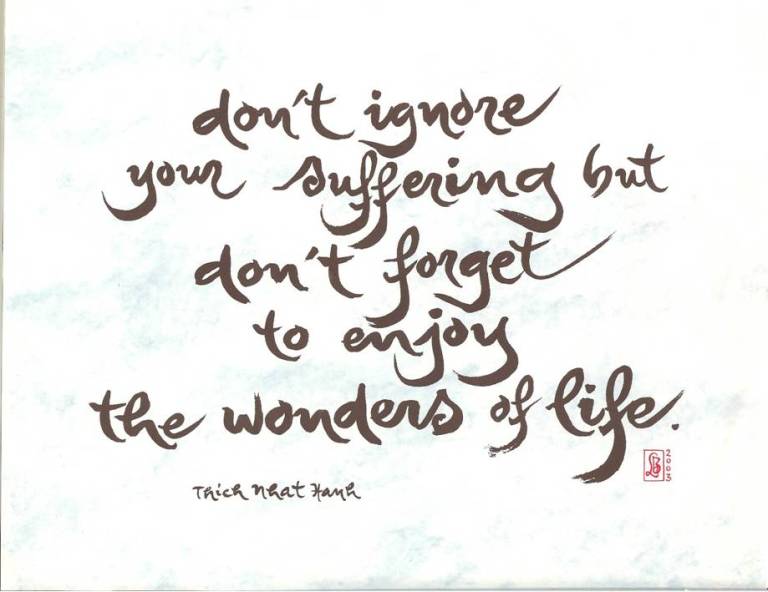 don't ignore
your suffering but
don't forget
to enjoy
the wonders of life.
Thich Nhat Hanh
2003